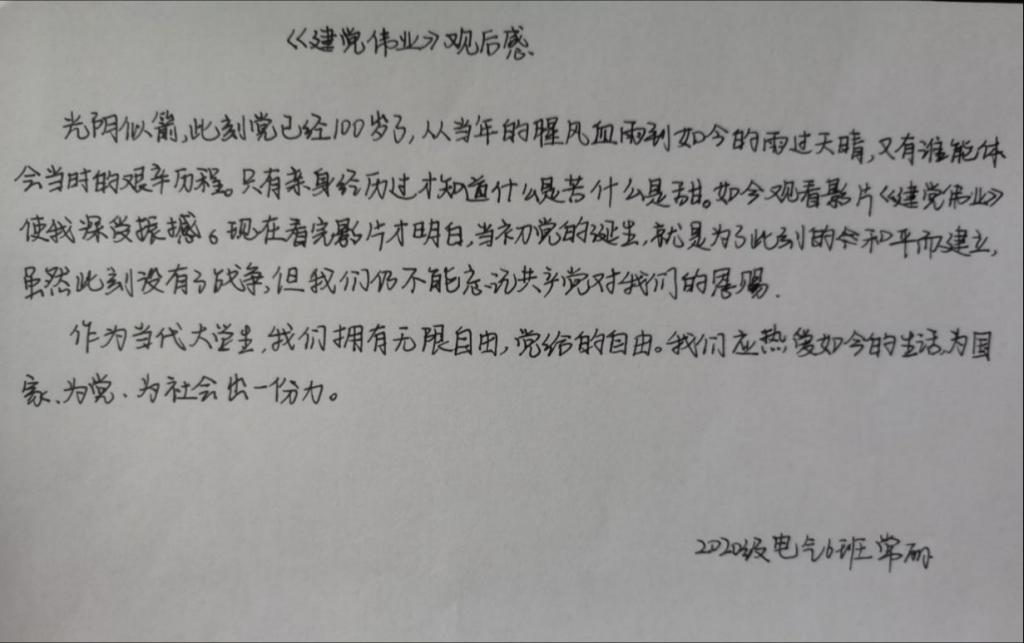 《建党伟业》观后感
光阴似箭,此刻党已经100岁了,从当年的腥风血雨到如今的雨过天晴,又有谁能体
会当时的艰辛历程。只有亲身经历过才知道什么是苦什么是甜。如今观看影片《建党伟业》
使我深受振撼。现在看完影片才明白,当初党的诞生,就是为了此刻的和平而建立,
虽然此刻没有了战争,但我们仍不能忘记共产党对我们的恩赐.
作为当代大学生,我们拥有无限自由,党给的自由。我们应热爱如今的生活,为国
家、为党、为社会出一份力。
2020级电气6班常